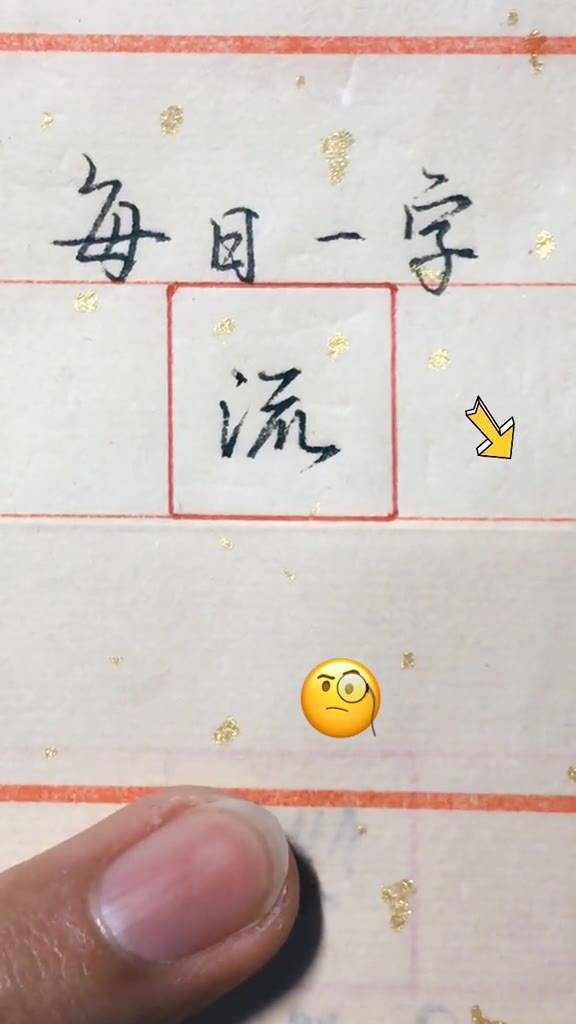 每日一字
流